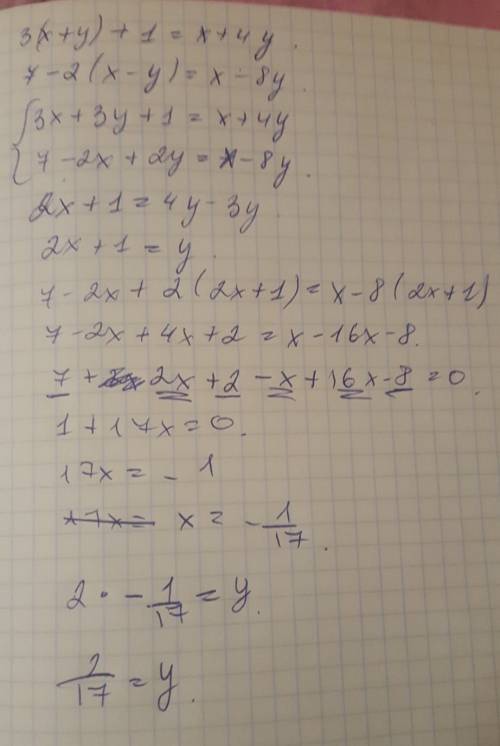 3(x+y)+1=x+4y.
7-2(x-y)=x-8y.
{3x+3y+1=x+4y
7-2x+2y=x-8y.
2x+1=4y-3y
2x+1=y.
7-2x+2(2x+1)=x-8(2x+1)
7-2x+4x+2=x-16x-8.
7+2x+2-x+16x-8=0.
1+17x=0.
17x=-1
17x= x=-1/17.
2·-1/17=y.
2/17=y.